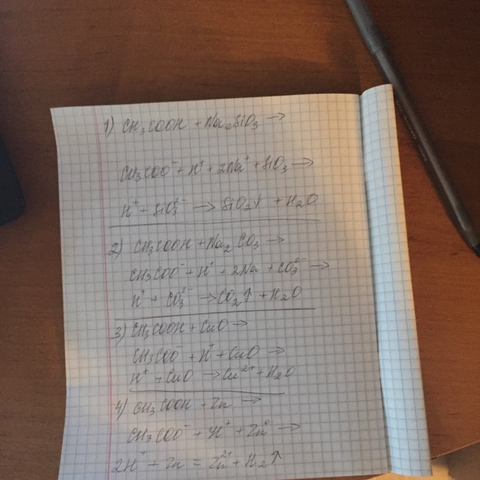 1) CH₃COOH + Na₂SiO₃ →
CH₃COO⁻ + H⁺ + 2Na⁺ + SiO₃ →
H⁺ + SiO₃²⁻ → SiO₃↓ + H₂O
2) CH₃COOH + Na₂CO₃ →
CH₃COO⁻ + H⁺ + 2Na + CO₃²⁻ →
H⁺ + CO₃²⁻ → CO₂↑ + H₂O
3) CH₃COOH + CuO →
CH₃COO⁻ + H⁺ + CuO →
H⁺ + CuO → Cu²⁺ + H₂O
4) CH₃COOH + Zn →
CH₃COO⁻ + H⁺ + Zn⁰ →
2H⁺ + Zn = Zn²⁺ + H₂↑